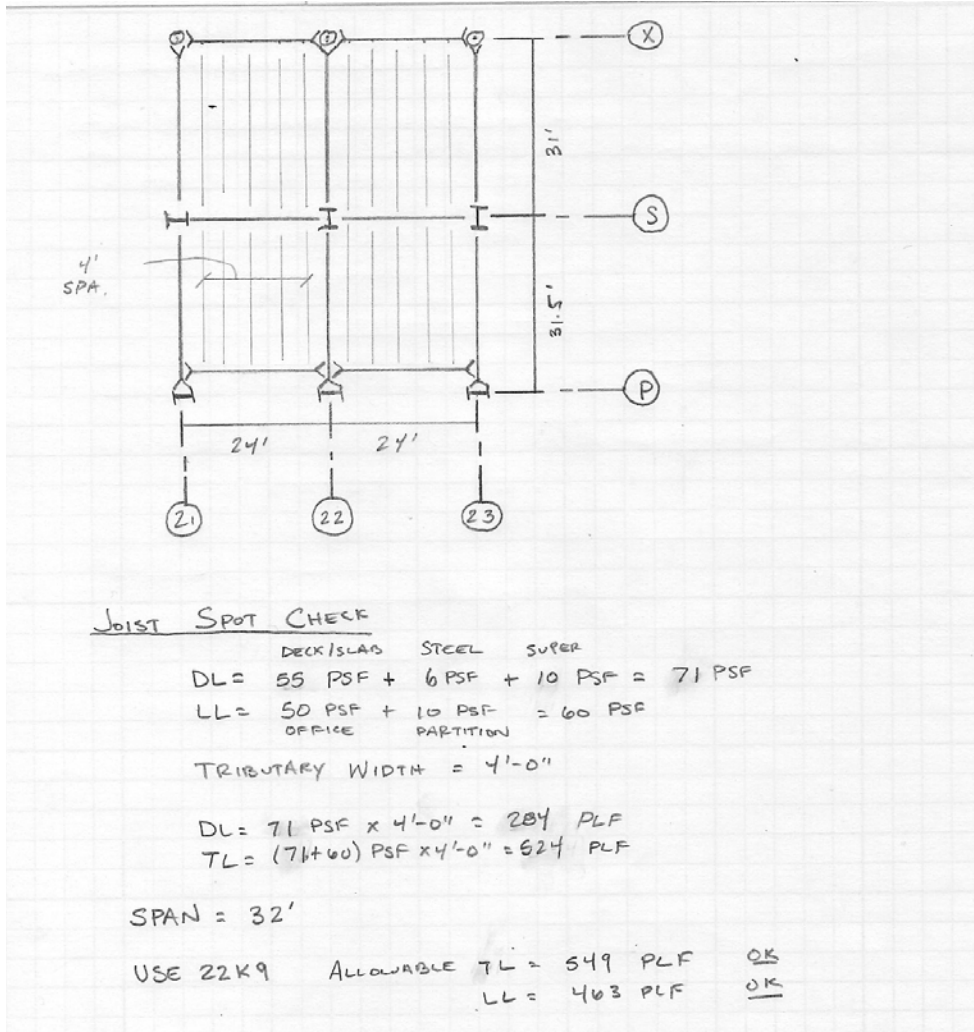 X
31'
S
4'
SPA.
31.5'
P
24' 24'
21 22 23
JOIST SPOT CHECK
DECK/SLAB STEEL SUPER
DL = 55 PSF + 6 PSF + 10 PSF = 71 PSF
LL = 50 PSF + 10 PSF = 60 PSF
OFFICE PARTITION
TRIBUTARY WIDTH = 4'-0"
DL = 71 PSF x 4'-0" = 284 PLF
TL = (71+60) PSF x 4'-0" = 524 PLF
SPAN = 32'
USE 22K9 ALLOWABLE TL = 549 PLF OK
LL = 463 PLF OK